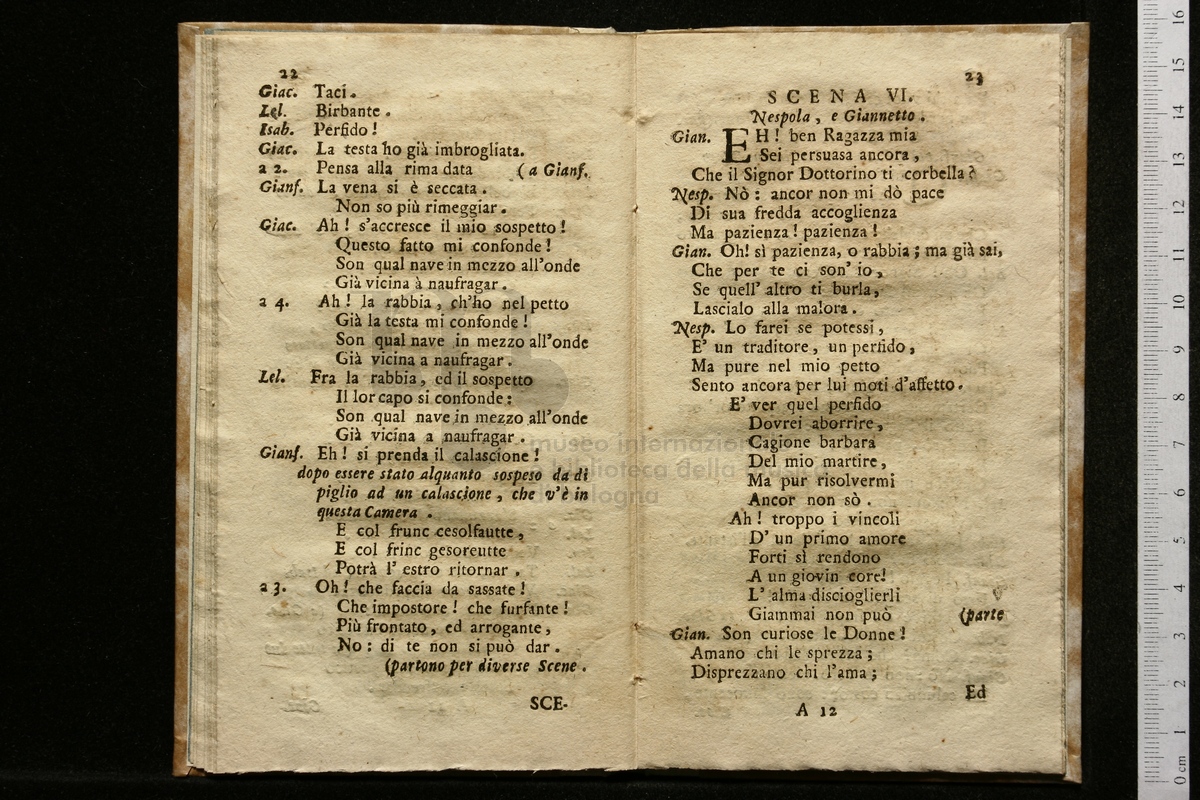 22
Giac. Taci.
Lel. Birbante.
Isab. Perfido!
Giac. La testa ho già imbrogliata.
a 2. Pensa alla rima data (a Gianf.
Gianf. La vena si è seccata.
Non so più rimeggiar.
Giac. Ah! s'accresce il mio sospetto!
Questo fatto mi confonde!
Son qual nave in mezzo all'onde
Già vicina à naufragar.
a 4. Ah! la rabbia, ch'ho nel petto
Già la testa mi confonde!
Son qual nave in mezzo all'onde
Già vicina a naufragar.
Lel. Fra la rabbia, ed il sospetto
Il lor capo si confonde:
Son qual nave in mezzo all'onde
Già vicina a naufragar.
Gianf. Eh! si prenda il calascione!
dopo essere stato alquanto sospeso da di
piglio ad un calascione, che v'è in
questa Camera.
E col frunc cesolfautte,
E col frinc gesoreutte
Potrà l'estro ritornar.
a 3. Oh! che faccia da sassate!
Che impostore! che furfante!
Più frontato, ed arrogante,
No: di te non si può dar.
(partono per diverse Scene.
SCE-
23
SCENA VI.
Nespola, e Giannetto.
Gian. EH! ben Ragazza mia
Sei persuasa ancora,
Che il Signor Dottorino ti corbella?
Nesp. Nò: ancor non mi dò pace
Di sua fredda accoglienza
Ma pazienza! pazienza!
Gian. Oh! sì pazienza, o rabbia; ma già sai,
Che per te ci son' io,
Se quell' altro ti burla,
Lascialo alla malora.
Nesp. Lo farei se potessi,
E' un traditore, un perfido,
Ma pure nel mio petto
Sento ancora per lui moti d'affetto.
E' ver quel perfido
Dovrei aborrire,
Cagione barbara
Del mio martire,
Ma pur risolvermi
Ancor non sò.
Ah! troppo i vincoli
D' un primo amore
Forti sì rendono
A un giovin core!
L' alma discioglierli
Giammai non può (parte
Gian. Son curiose le Donne!
Amano chi le sprezza;
Disprezzano chi l'ama;
Ed
A 12
museo internazionale
biblioteca della musica
bologna
0 cm 1 2 3 4 5 6 7 8 9 10 11 12 13 14 15 16